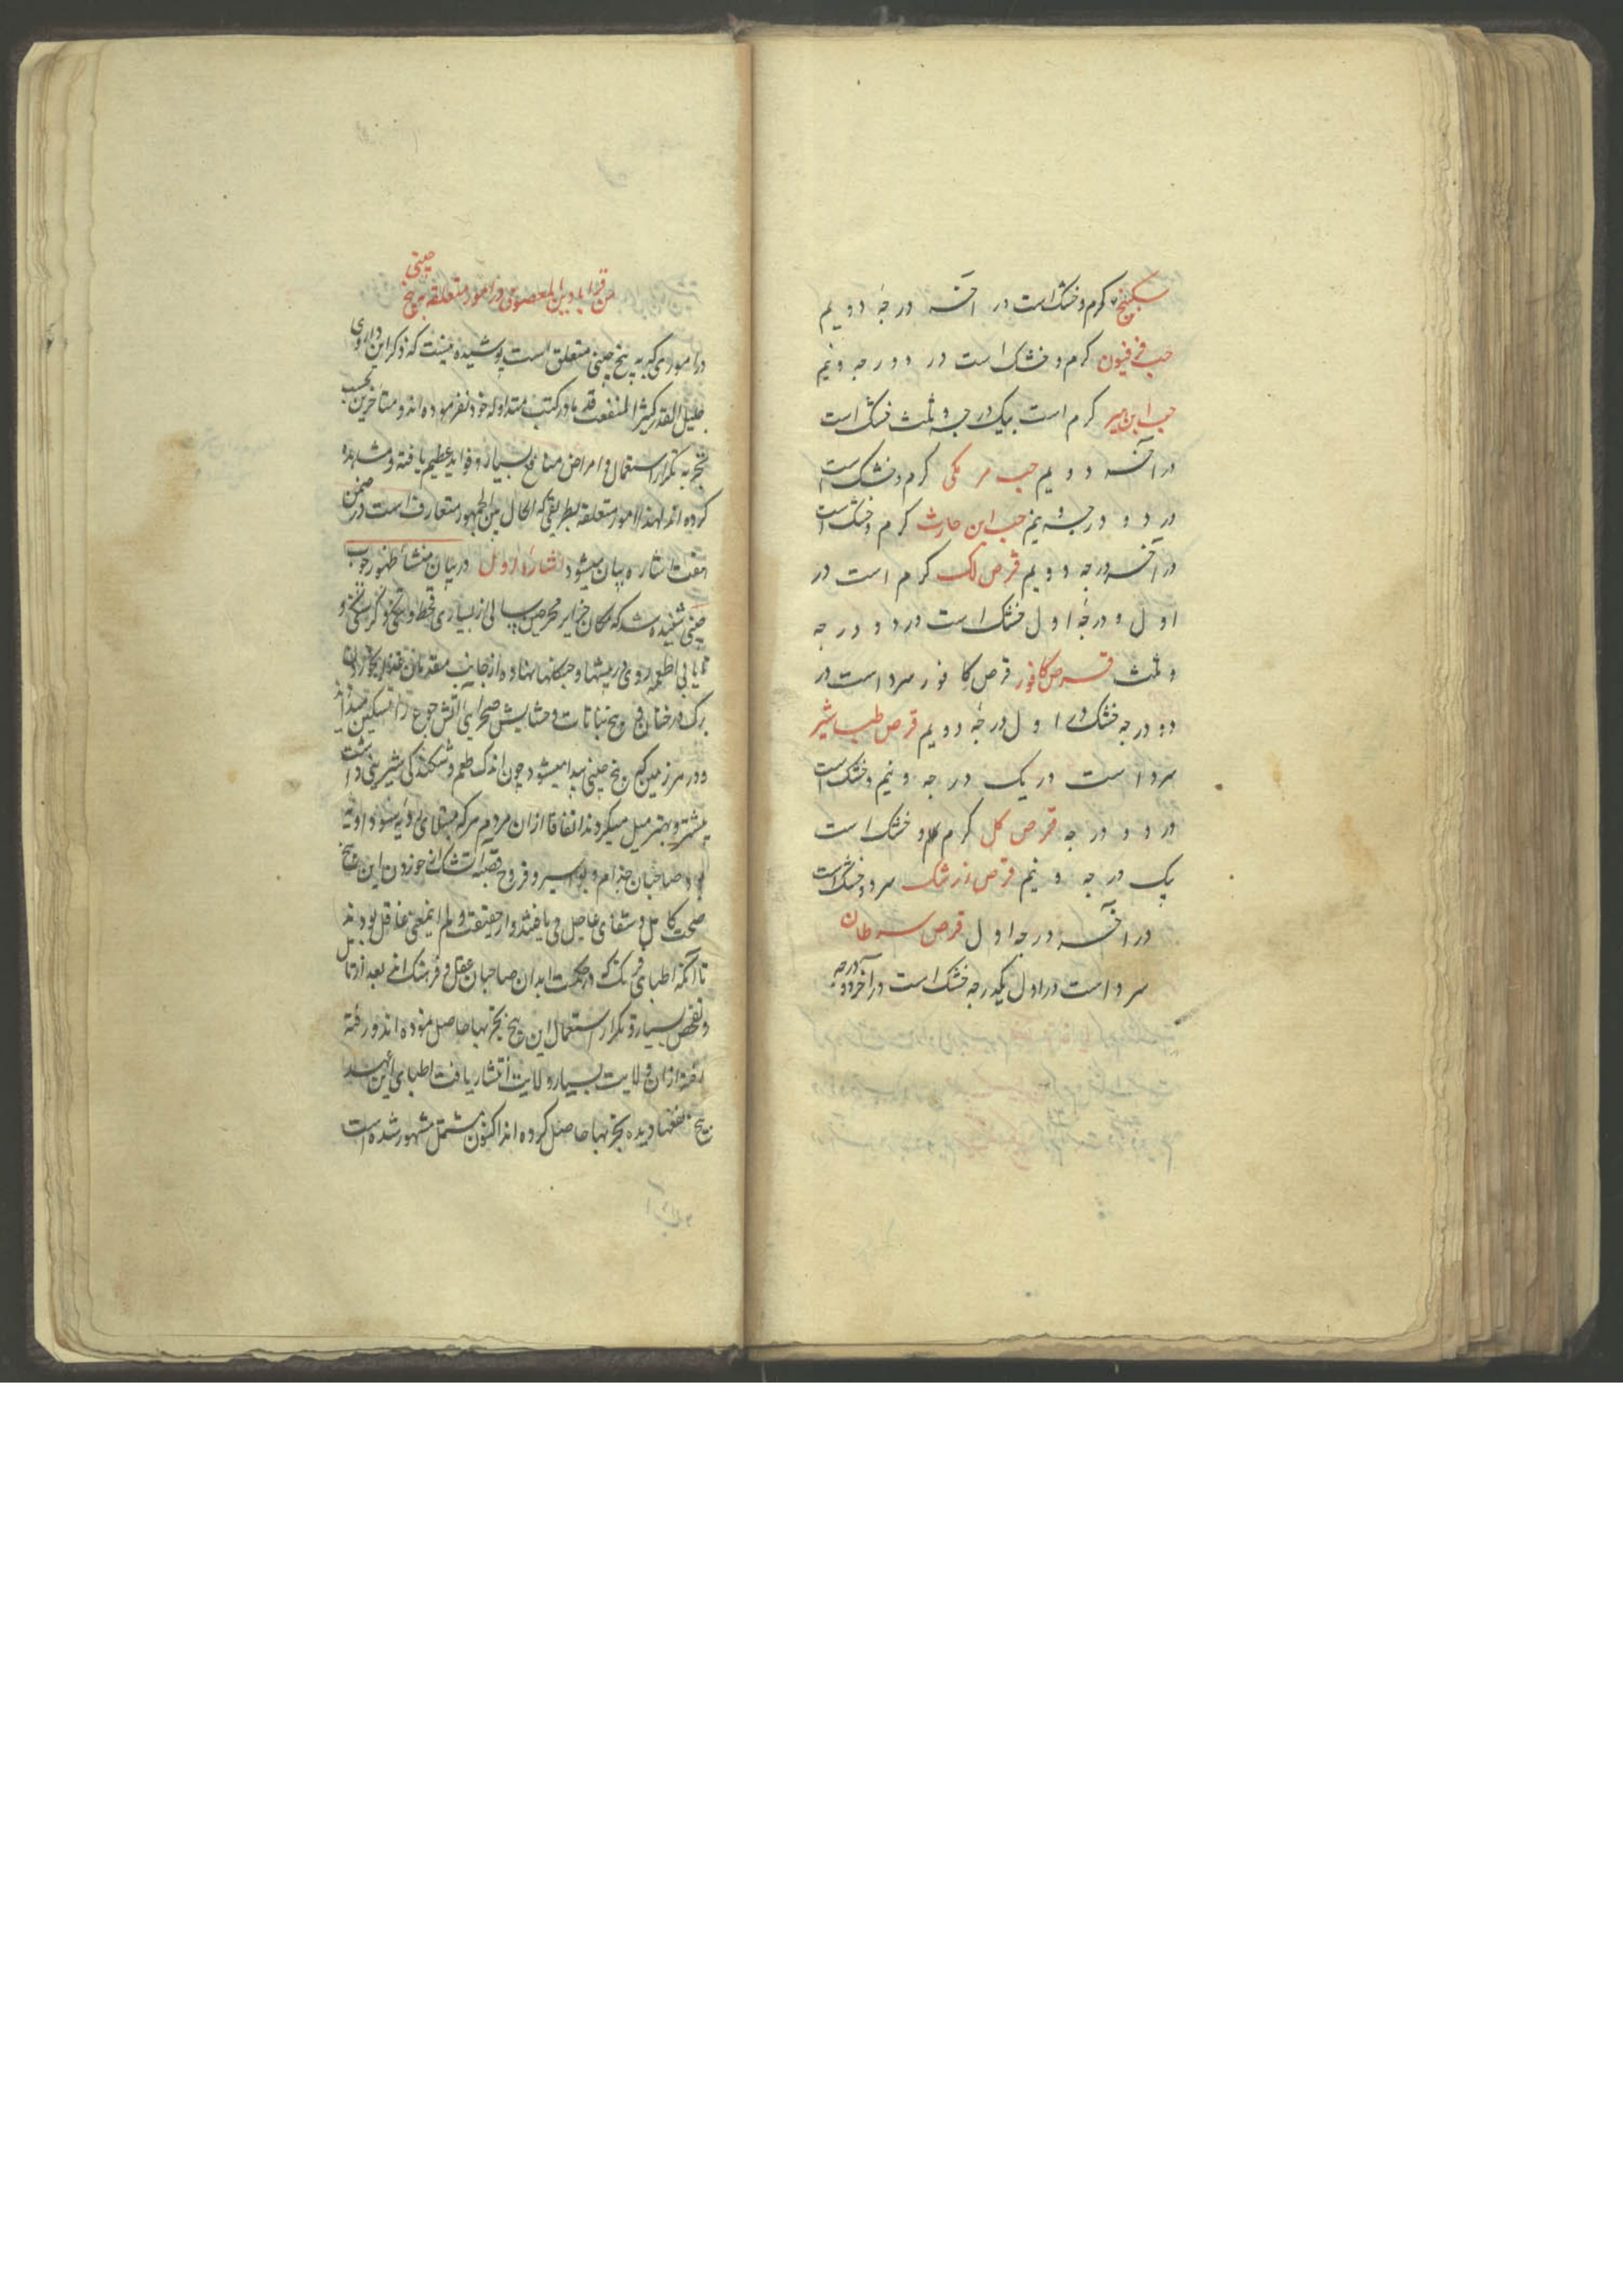 سکبینج گرم و خشک است در آخر درجه دویم
حب فرفیون گرم و خشک است در دو درجه و نیم
گرم است بیک درجه و ثلث خشک است
در آخر دویم حب مر مکی گرم و خشک است
در دو درجه و نیم حب ابن حارث گرم و خشک است
در آخر درجه دویم قرص لک گرم است در
اول و درجه اول خشک است در دو درجه
و ثلث قرص کافور قرص کافور سرد است در
دو درجه خشک در اول درجه دویم قرص طباشیر
سرد است در یک درجه و نیم و خشک است
در دو درجه قرص گل گرم و خشک است
یک درجه و نیم قرص زرشک سرد و خشک است
در آخر درجه اول قرص سرطان
سرد است در اول یکدرجه خشک است در آخر دو درجه
من قرابادین المعصومی در امور متعلقه به بیخ چینی
در اموری که به بیخ چینی متعلق است پوشیده نیست که ذکر این داروی
جلیل القدر کثیر المنفعت قدما در کتب متداوله خود نفرموده اند و متأخرین بحسب
تجربه تکرار استعمال و امراض منافع بسیار و فواید عظیم یافته و مشاهده
کرده اند لهذا امور متعلقه بطریقی که الحال بین الجمهور متعارف است در ضمن
هفت اشاره بیان میشود اشاره اول در بیان منشأ ظهور چوب
چینی شنیده شد که سکان جزایر سالی از بسیاری قحط و تنگی و گرسنگی و
نایابی اطعمه روی در بیشها و جنگلها نهاده از جانب بخوردن
برگ درختان و بیخ نباتات و حشایش صحرایی آتش جوع را تسکین میدادند
و در سرزمین که بیخ چینی پیدا میشود چون اندک طعم و شکنندگی شیرینی داشت
بیشتر و بهتر میل میکردند اتفاقا ازان مردم هر که مبتلای
بود صاحبان جذام و بواسیر و قروح خوردن این بیخ
صحت کامل و شفای عاجل می یافتند و از حقیقت و لم اینمعنی غافل بودند
تا آنکه اطبای فرنگ که در حکمت ابدان صاحبان عقل و فرهنگ اند بعد از تأمل
و تفحص بسیار و تکرار استعمال این بیخ تجربها حاصل نموده اند و رفته
رفته ازان ولایت بسیار ولایت انتشار یافت اطبای این
بیخ نفعها دیده تجربها حاصل کرده اند اکنون مشهور شده است